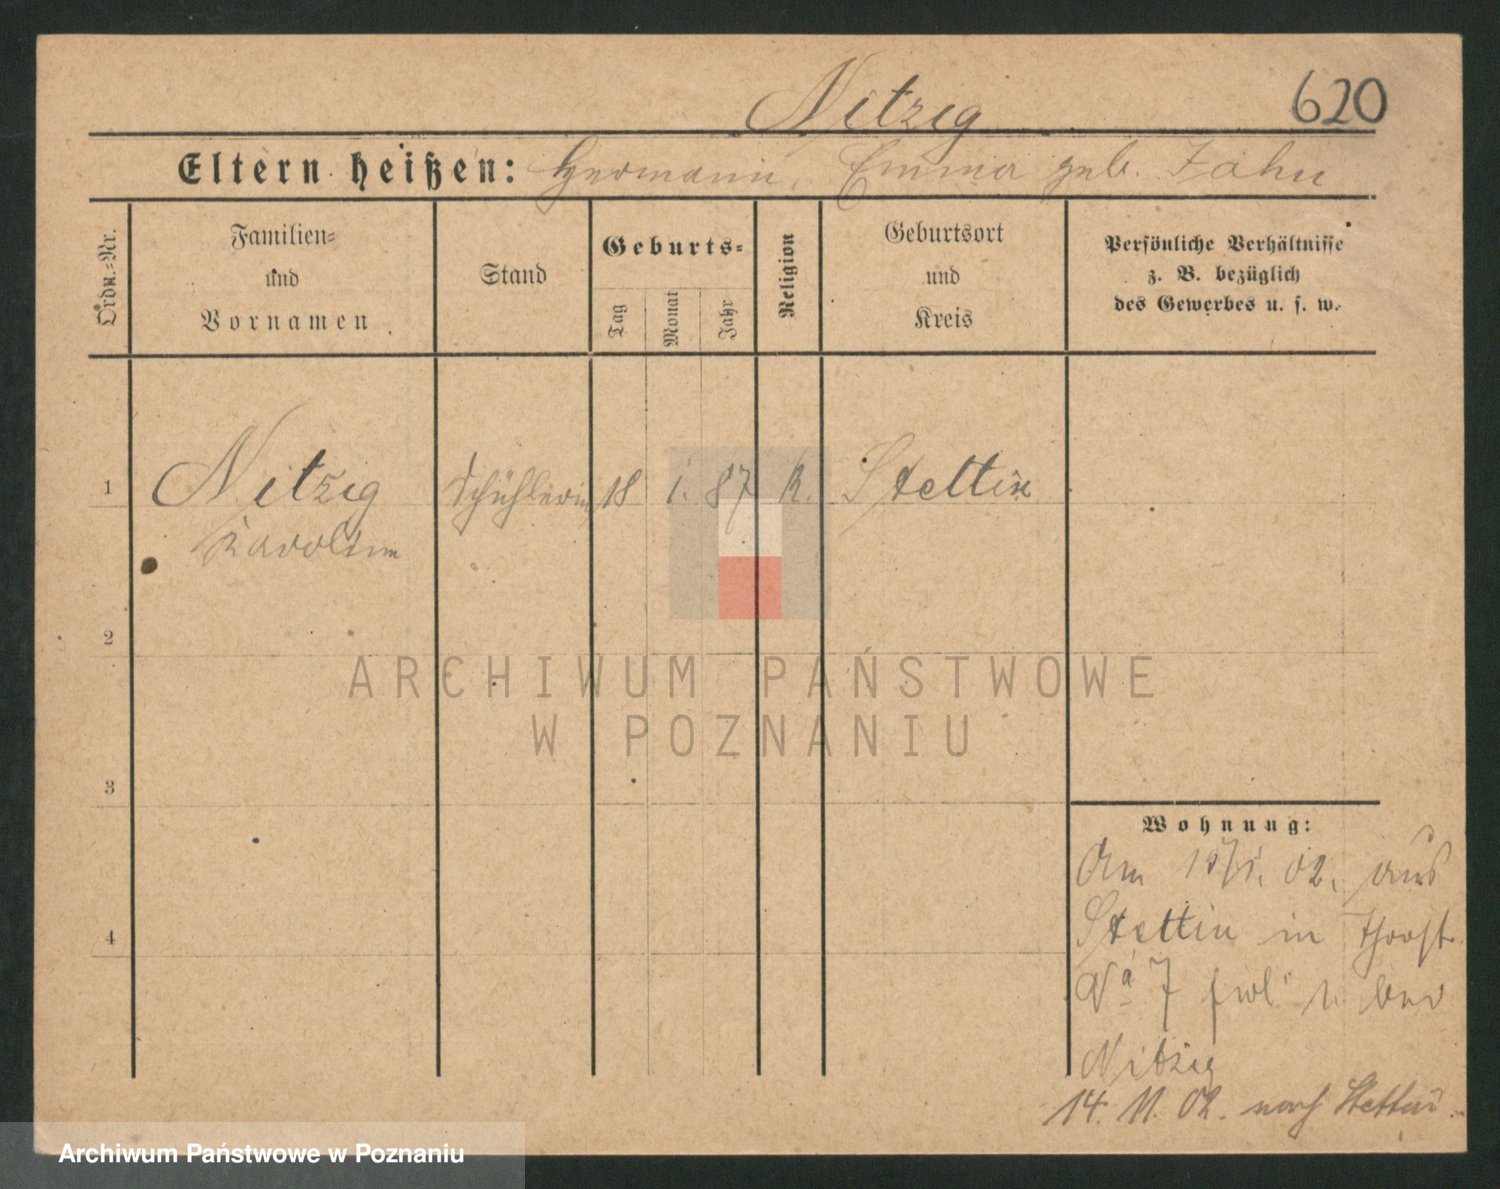 Nitzig
620
Eltern heißen: Hermann, Emma geb. Zahn
Ordn.-Nr.
Familien-
und
Vornamen
Stand
Geburts-
Tag
Monat
Jahr
Religion
Geburtsort
und
Kreis
Persönliche Verhältnisse
z. B. bezüglich
des Gewerbes u. s. w.
1
Nitzig
Schühlerin
18
1.
87
K.
Stettin
2
3
4
Wohnung:
Am 02. aus
Stettin in
7
Nitzig
14. 11. 02. nach Stettin
ARCHIWUM PAŃSTWOWE
W POZNANIU
Archiwum Państwowe w Poznaniu